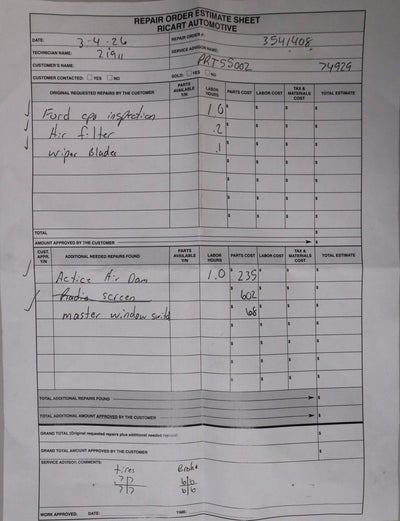 REPAIR ORDER ESTIMATE SHEET
RICART AUTOMOTIVE
DATE: 3-4-26 REPAIR ORDER #: 3541408
TECHNICIAN NAME: 21911 SERVICE ADVISOR NAME:
CUSTOMER'S NAME: PRTSS002 74929
CUSTOMER CONTACTED: YES NO SOLD: YES NO
ORIGINAL REQUESTED REPAIRS BY THE CUSTOMER PARTS AVAILABLE Y/N LABOR HOURS PARTS COST LABOR COST TAX & MATERIALS COST TOTAL ESTIMATE
Ford cpo inspection 1.0 $ $ $ $
Air filter .2
wiper Blades .1
TOTAL $
AMOUNT APPROVED BY THE CUSTOMER $
CUST. APPR. Y/N ADDITIONAL NEEDED REPAIRS FOUND PARTS AVAILABLE Y/N LABOR HOURS PARTS COST LABOR COST TAX & MATERIALS COST TOTAL ESTIMATE
Active Air Dam 1.0 $ 235 $ $ $
screen 602
master window 68
TOTAL ADDITIONAL REPAIRS FOUND $
TOTAL ADDITIONAL AMOUNT APPROVED BY THE CUSTOMER $
GRAND TOTAL (Original requested repairs plus additional needed repairs) $
GRAND TOTAL AMOUNT APPROVED BY THE CUSTOMER $
SERVICE ADVISOR COMMENTS:
tires Brake
7|7 6|6
7|7 6|6
WORK APPROVED: DATE: TIME: